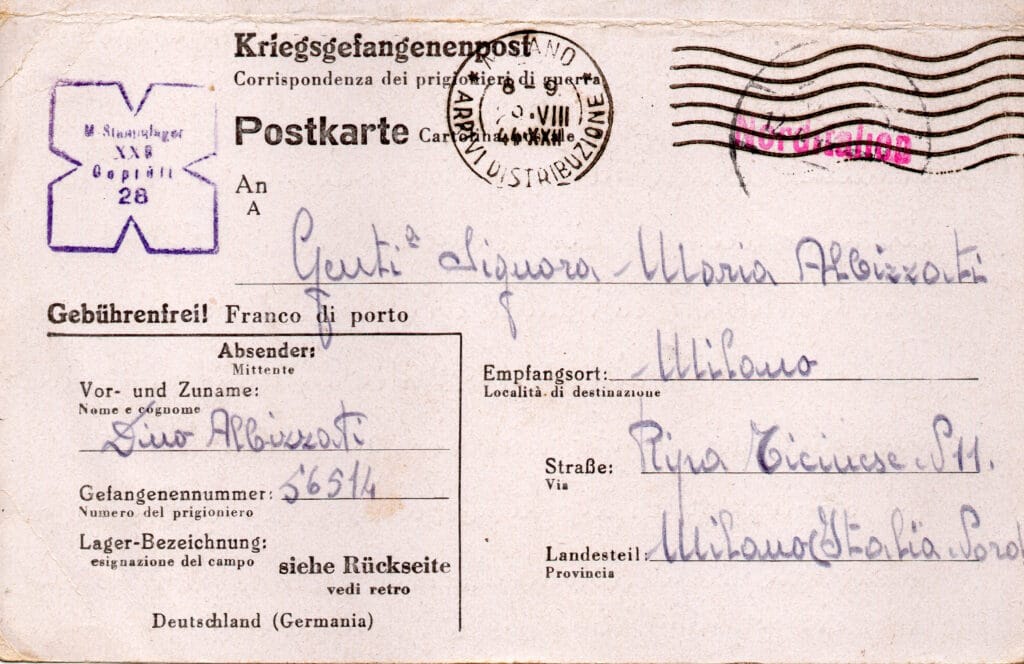 Kriegsgefangenenpost
Corrispondenza dei prigionieri di guerra
Postkarte Cartolina postale
MILANO
8-9
VIII
44 XXII
ARRIVI DISTRIBUZIONE
Norditalien
M-Stammlager
XXB
Geprüft
28
An
A
Gentiª Signora Maria Albizzati
Gebührenfrei! Franco di porto
Absender:
Mittente
Vor- und Zuname:
Nome e cognome
Dino Albizzati
Gefangenennummer: 56514
Numero del prigioniero
Lager-Bezeichnung:
esignazione del campo
siehe Rückseite
vedi retro
Deutschland (Germania)
Empfangsort: Milano
Località di destinazione
Straße: Ripa Ticinese N 11.
Via
Landesteil: Milano (Italia Nord
Provincia